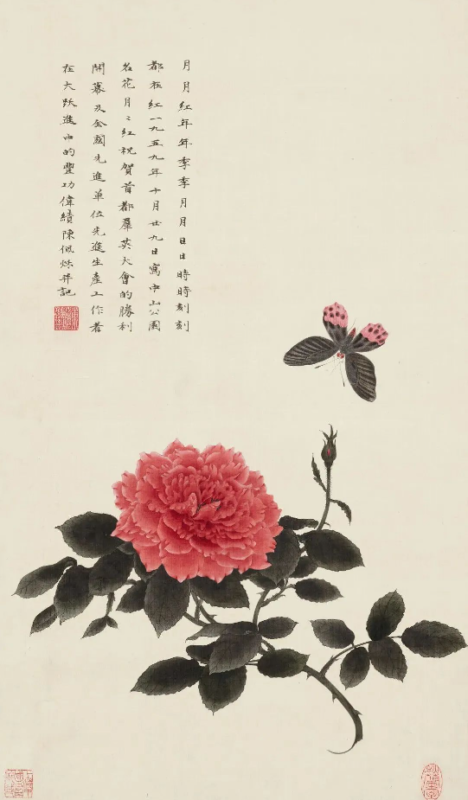 月月红年年季季月月日日時時刻刻
都在紅一九五九年十月廿九日寫中山公園
名花月〻紅祝賀首都羣英大會的勝利
開幕及全國先進單位先進生產工作者
在大跃進中的豐功偉績陳佩秋并記